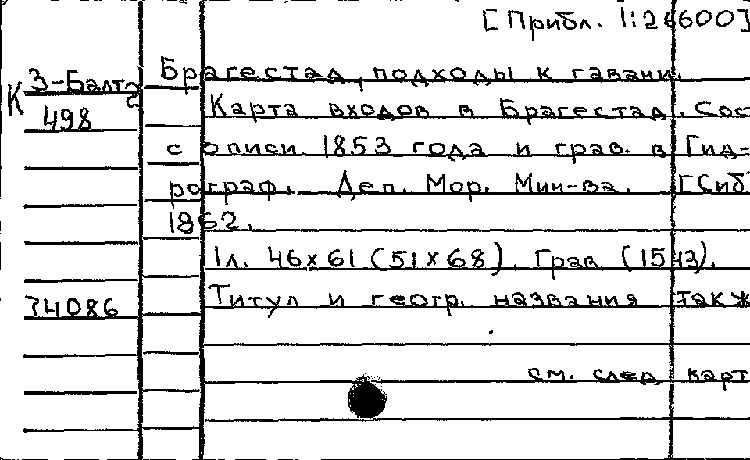 [Прибл. 1:2 600]
З-Балт2
Брагестад, подходы к гавани.
К
498
Карта входов в Брагестад. Сос
с описи 1853 года и грав. в Гид-
рограф. Деп. Мор. Мин-ва. [Спб
1862.
1л. 46×61 (51×68). Грав. (1543).
74086
Титул и геогр. названия такж
см. след карт